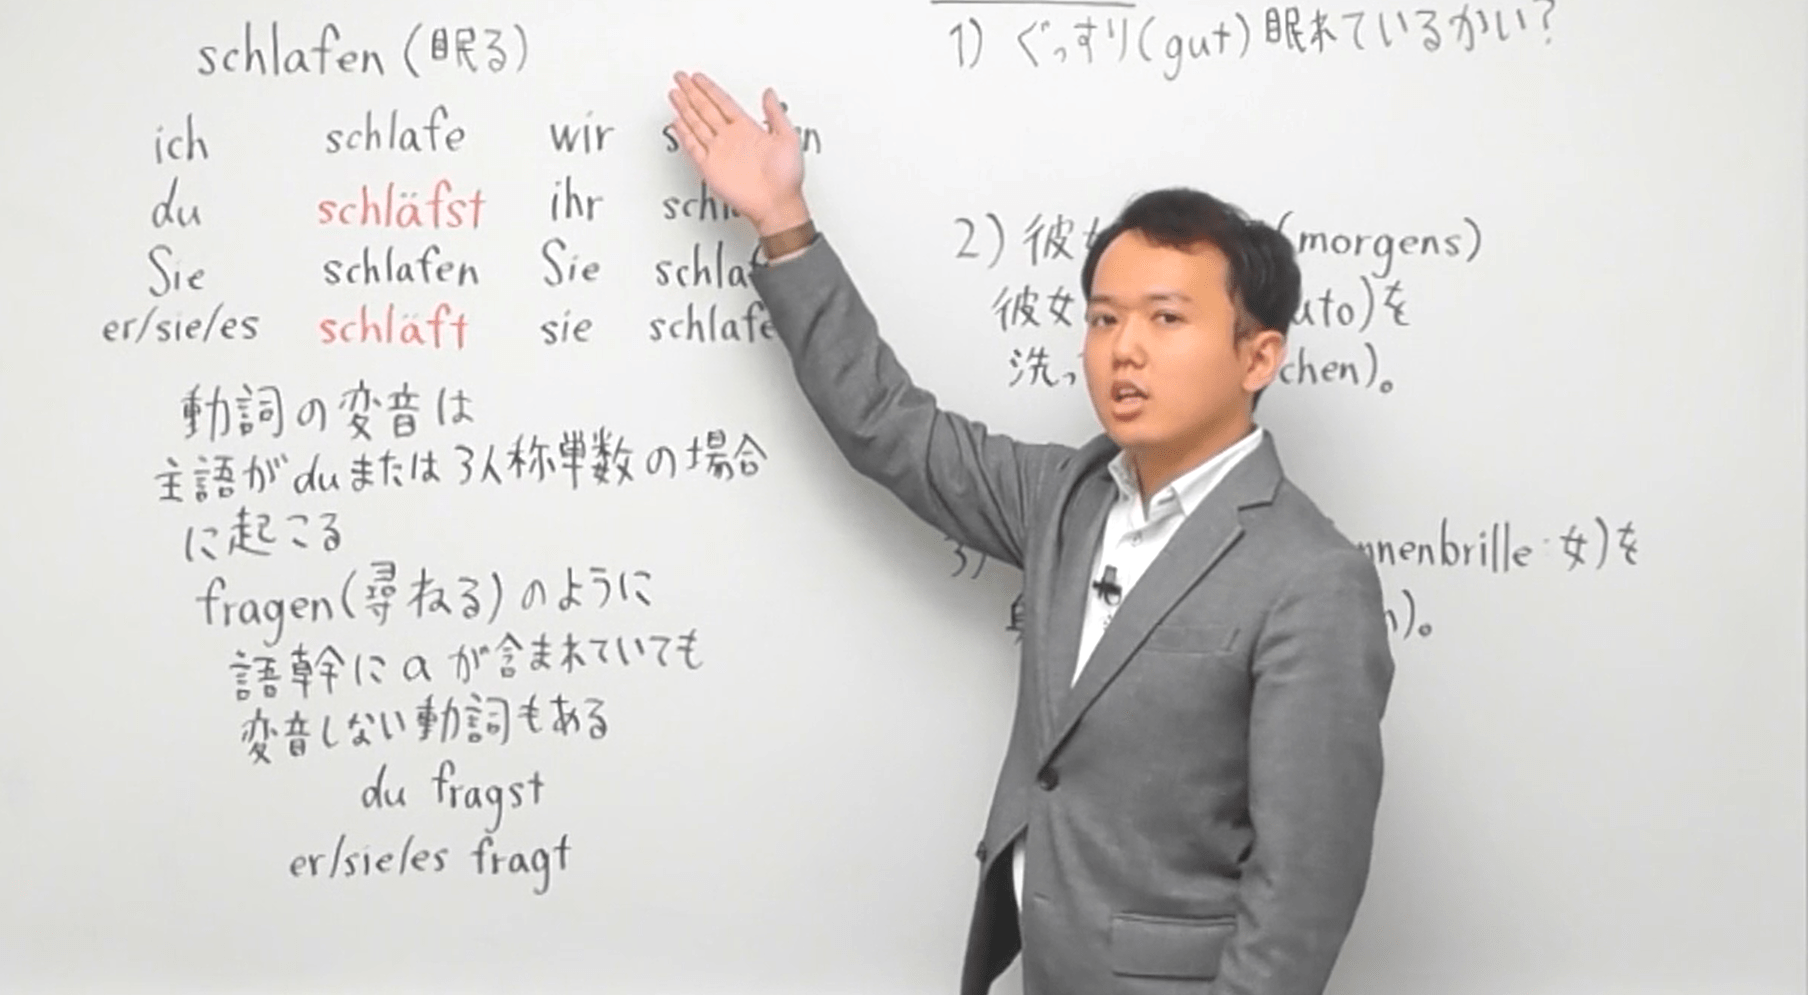 schlafen (眠る)
ich schlafe wir
du schläfst ihr
Sie schlafen Sie
er/sie/es schläft sie
動詞の変音は
主語がduまたは3人称単数の場合
に起こる
fragen(尋ねる)のように
語幹にaが含まれていても
変音しない動詞もある
du fragst
er/sie/es fragt
1) ぐっすり(gut)眠れているかい?
2) (morgens)
彼女 を
洗っ 。
3) 女)を